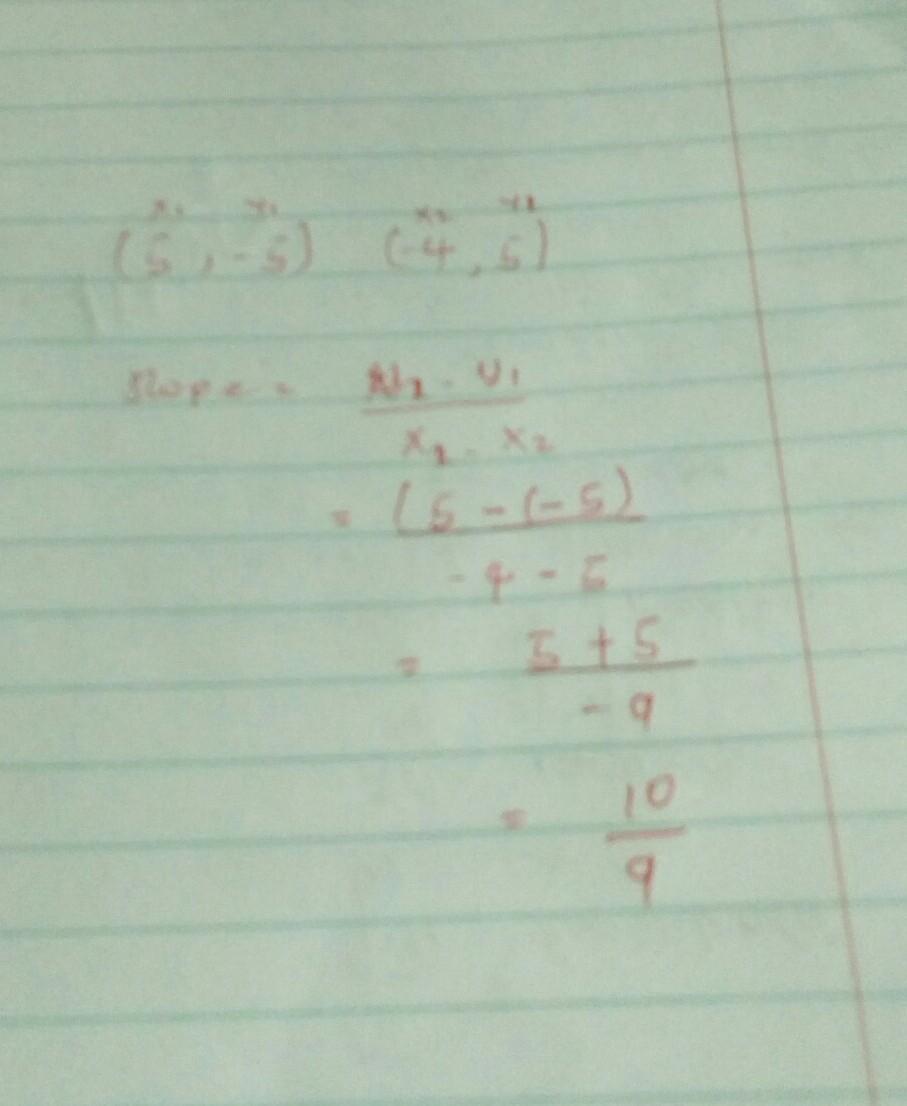 x₁ y₁ x₂ y₂
(5, -5) (-4, 5)
Slope = y₂ - y₁
x₂ - x₂
= (5 - (-5)
-4 - 5
= 5 + 5
-9
= 10
9